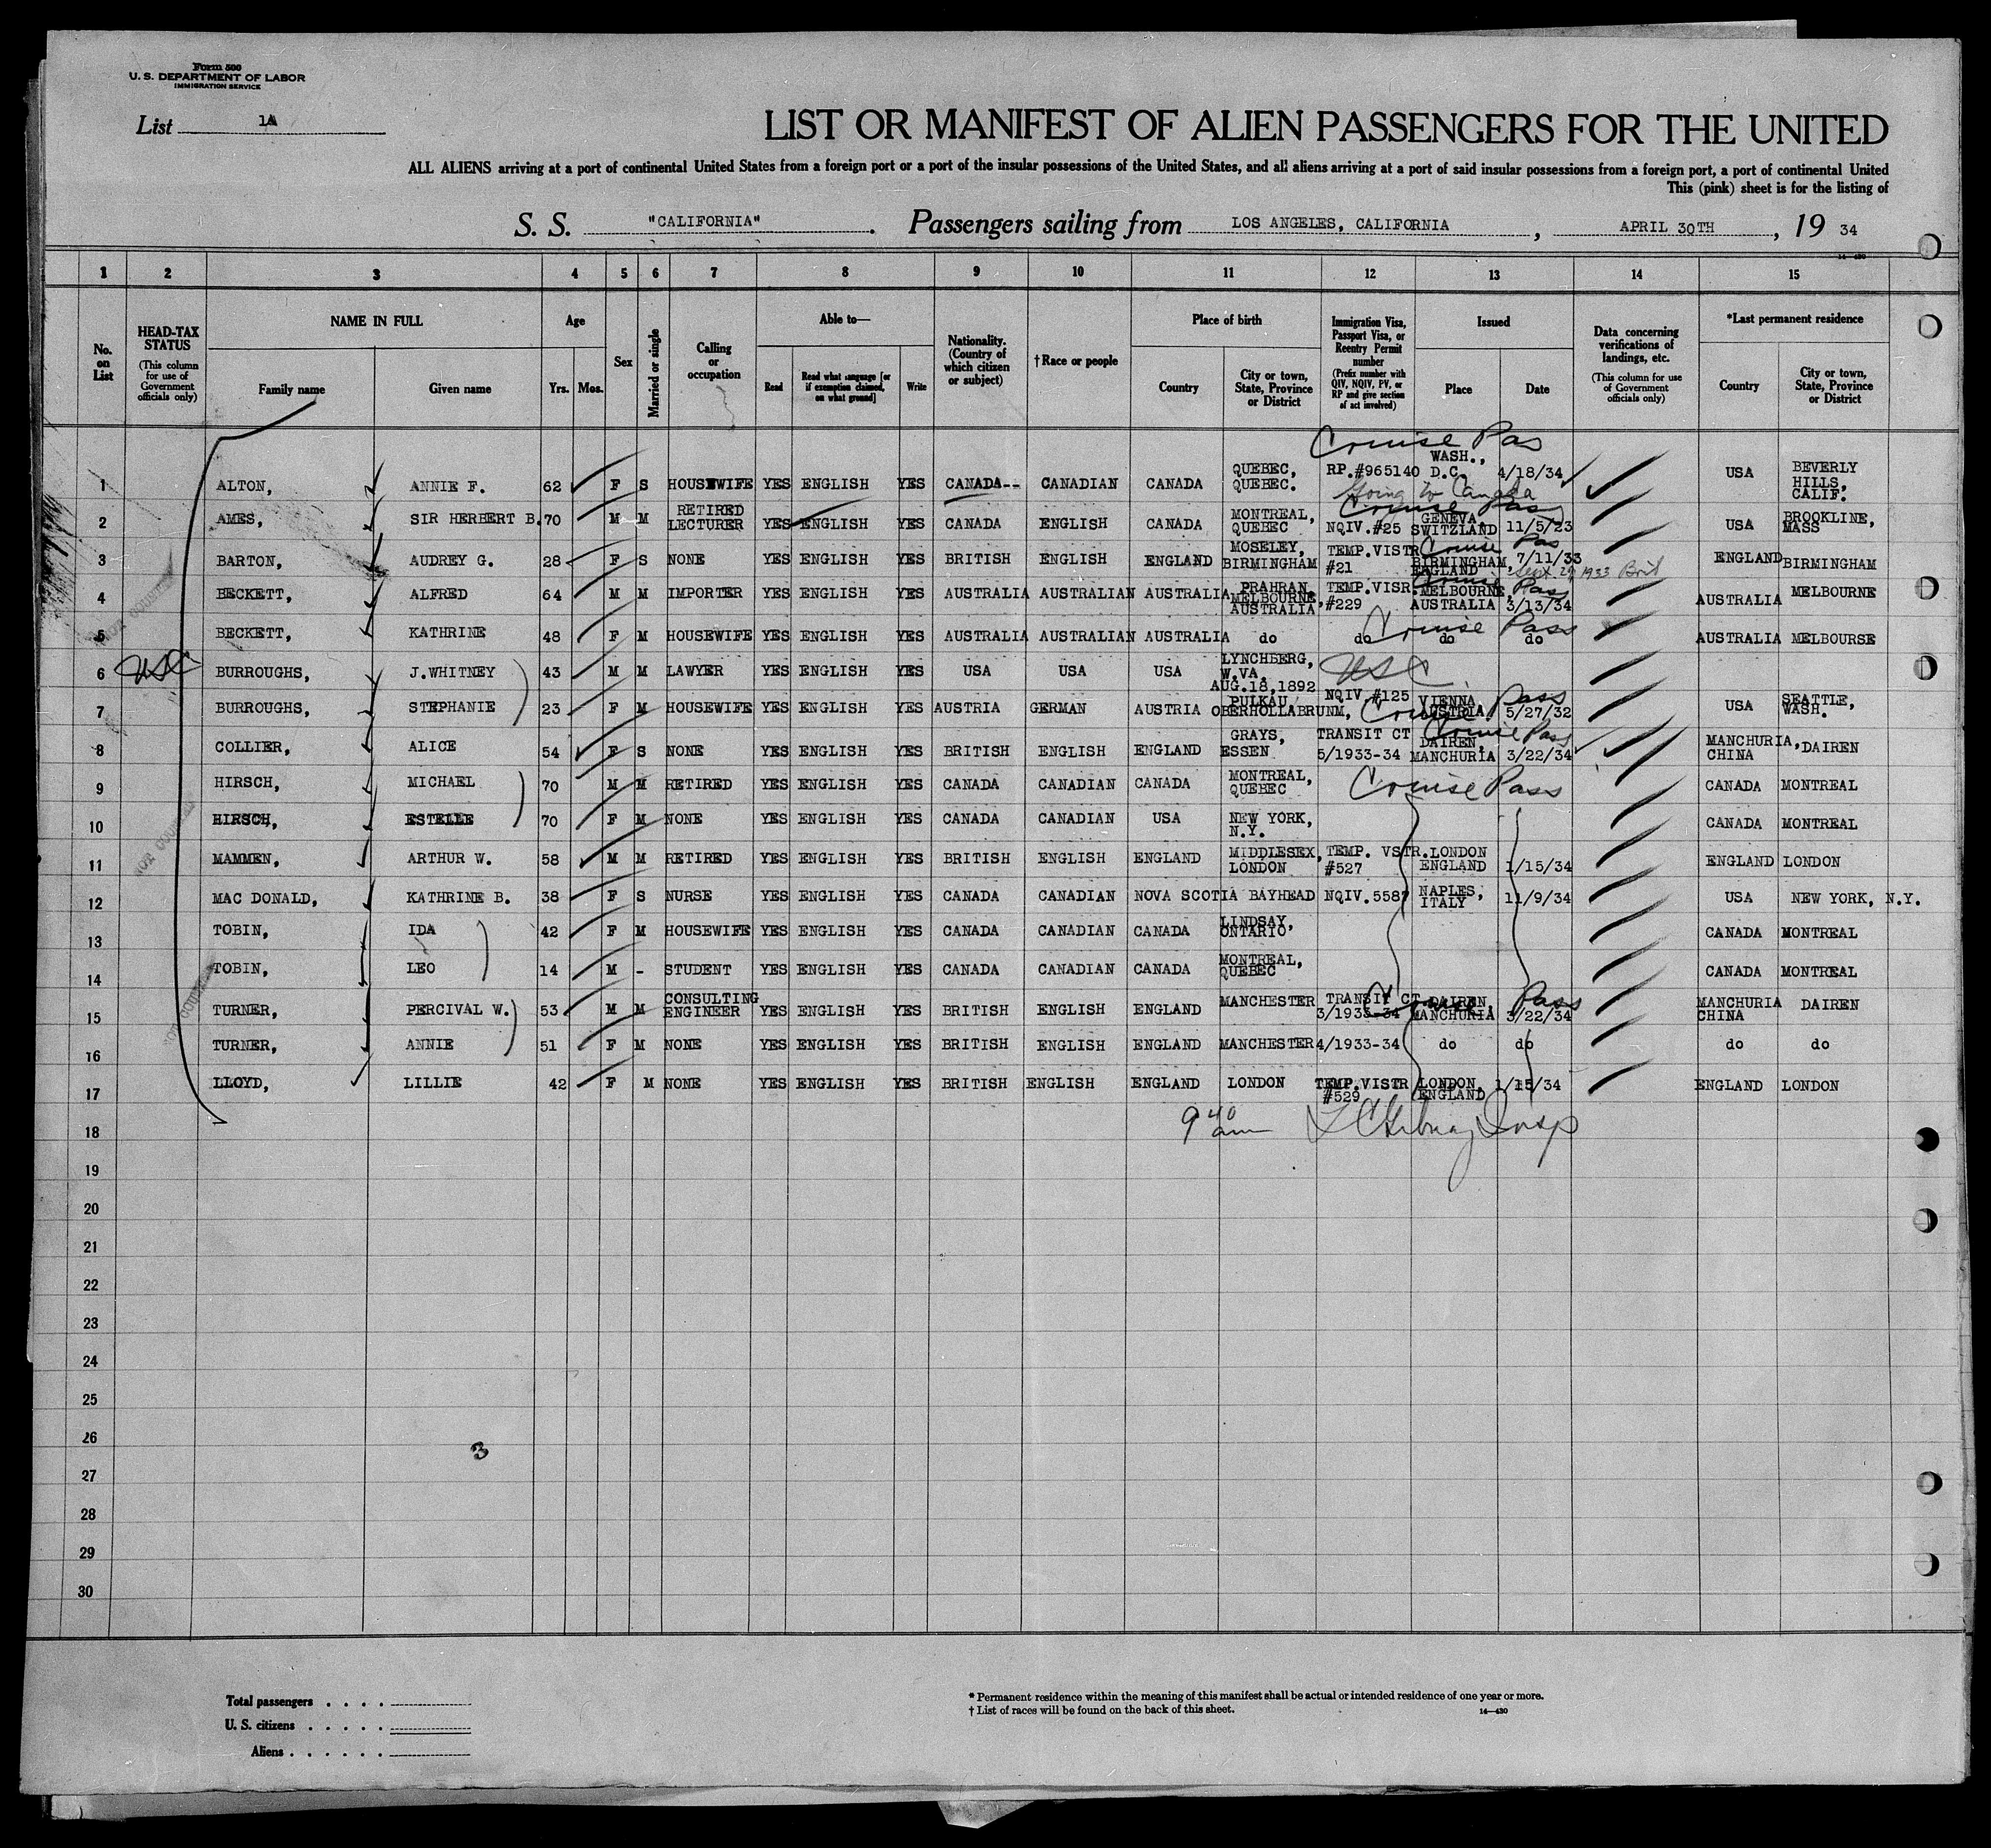 Form 500
U. S. DEPARTMENT OF LABOR
IMMIGRATION SERVICE
List 1A
LIST OR MANIFEST OF ALIEN PASSENGERS FOR THE UNITED
ALL ALIENS arriving at a port of continental United States from a foreign port or a port of the insular possessions of the United States, and all aliens arriving at a port of said insular possessions from a foreign port, a port of continental United
This (pink) sheet is for the listing of
S. S. "CALIFORNIA". Passengers sailing from LOS ANGELES, CALIFORNIA, APRIL 30TH, 19 34
14—430
1 2 3 4 5 6 7 8 9 10 11 12 13 14 15
No. on List
HEAD-TAX STATUS (This column for use of Government officials only)
NAME IN FULL
Family name
Given name
Age
Yrs. Mos.
Sex
Married or single
Calling or occupation
Able to—
Read
Read what language [or if exemption claimed, on what ground]
Write
Nationality. (Country of which citizen or subject)
† Race or people
Place of birth
Country
City or town, State, Province or District
Immigration Visa, Passport Visa, or Reentry Permit number (Prefix number with QIV, NQIV, PV, or RP and give section of act involved)
Issued
Place
Date
Data concerning verifications of landings, etc. (This column for use of Government officials only)
*Last permanent residence
Country
City or town, State, Province or District
Cruise Pas
1 ALTON, ANNIE F. 62 F S HOUSEWIFE YES ENGLISH YES CANADA-- CANADIAN CANADA QUEBEC, QUEBEC. RP.#965140 WASH., D.C. 4/18/34 USA BEVERLY HILLS, CALIF.
Going to Canada
Cruise Pass
2 AMES, SIR HERBERT B. 70 M M RETIRED LECTURER YES ENGLISH YES CANADA ENGLISH CANADA MONTREAL, QUEBEC NQIV.#25 GENEVA, SWITZLAND 11/5/23 USA BROOKLINE, MASS
Cruise Pas
3 BARTON, AUDREY G. 28 F S NONE YES ENGLISH YES BRITISH ENGLISH ENGLAND MOSELEY, BIRMINGHAM TEMP.VISTR #21 BIRMINGHAM, ENGLAND 7/11/33 ENGLAND BIRMINGHAM
Sept 29 1933 Brit
Cruise Pass
4 BECKETT, ALFRED 64 M M IMPORTER YES ENGLISH YES AUSTRALIA AUSTRALIAN AUSTRALIA PRAHRAN, MELBOURNE, AUSTRALIA, TEMP.VISR. #229 MELBOURNE, AUSTRALIA 3/13/34 AUSTRALIA MELBOURNE
5 BECKETT, KATHRINE 48 F M HOUSEWIFE YES ENGLISH YES AUSTRALIA AUSTRALIAN AUSTRALIA do do Cruise Pass do do AUSTRALIA MELBOURSE
6 USC BURROUGHS, J.WHITNEY 43 M M LAWYER YES ENGLISH YES USA USA USA LYNCHBERG, W.VA. AUG.18,1892 USC
7 BURROUGHS, STEPHANIE 23 F M HOUSEWIFE YES ENGLISH YES AUSTRIA GERMAN AUSTRIA PULKAU, OBERHOLLABRUNM, NQIV.#125 VIENNA, AUSTRIA. 5/27/32 Cruise Pass USA SEATTLE, WASH.
8 COLLIER, ALICE 54 F S NONE YES ENGLISH YES BRITISH ENGLISH ENGLAND GRAYS, ESSEN TRANSIT CT 5/1933-34 DAIREN, MANCHURIA 3/22/34 Cruise Pass MANCHURIA, CHINA DAIREN
9 HIRSCH, MICHAEL 70 M M RETIRED YES ENGLISH YES CANADA CANADIAN CANADA MONTREAL, QUEBEC Cruise Pass CANADA MONTREAL
10 HIRSCH, ESTELLE 70 F M NONE YES ENGLISH YES CANADA CANADIAN USA NEW YORK, N.Y. CANADA MONTREAL
11 MAMMEN, ARTHUR W. 58 M M RETIRED YES ENGLISH YES BRITISH ENGLISH ENGLAND MIDDLESEX, LONDON TEMP. VSTR. #527 LONDON ENGLAND 1/15/34 ENGLAND LONDON
12 MAC DONALD, KATHRINE B. 38 F S NURSE YES ENGLISH YES CANADA CANADIAN NOVA SCOTIA BAYHEAD NQIV.5587 NAPLES, ITALY 11/9/34 USA NEW YORK, N.Y.
13 TOBIN, IDA 42 F M HOUSEWIFE YES ENGLISH YES CANADA CANADIAN CANADA LINDSAY, ONTARIO, CANADA MONTREAL
14 TOBIN, LEO 14 M - STUDENT YES ENGLISH YES CANADA CANADIAN CANADA MONTREAL, QUEBEC CANADA MONTREAL
15 TURNER, PERCIVAL W. 53 M M CONSULTING ENGINEER YES ENGLISH YES BRITISH ENGLISH ENGLAND MANCHESTER TRANSIT CT 3/1933-34 DAIREN, MANCHURIA 3/22/34 Cruise Pass MANCHURIA CHINA DAIREN
16 TURNER, ANNIE 51 F M NONE YES ENGLISH YES BRITISH ENGLISH ENGLAND MANCHESTER 4/1933-34 do do do do
17 LLOYD, LILLIE 42 F M NONE YES ENGLISH YES BRITISH ENGLISH ENGLAND LONDON TEMP.VISTR #529 LONDON, ENGLAND 1/15/34 ENGLAND LONDON
18 9 40 am Insp
19
20
21
22
23
24
25
26
3
27
28
29
30
Total passengers
U. S. citizens
Aliens
* Permanent residence within the meaning of this manifest shall be actual or intended residence of one year or more.
† List of races will be found on the back of this sheet.
14—430